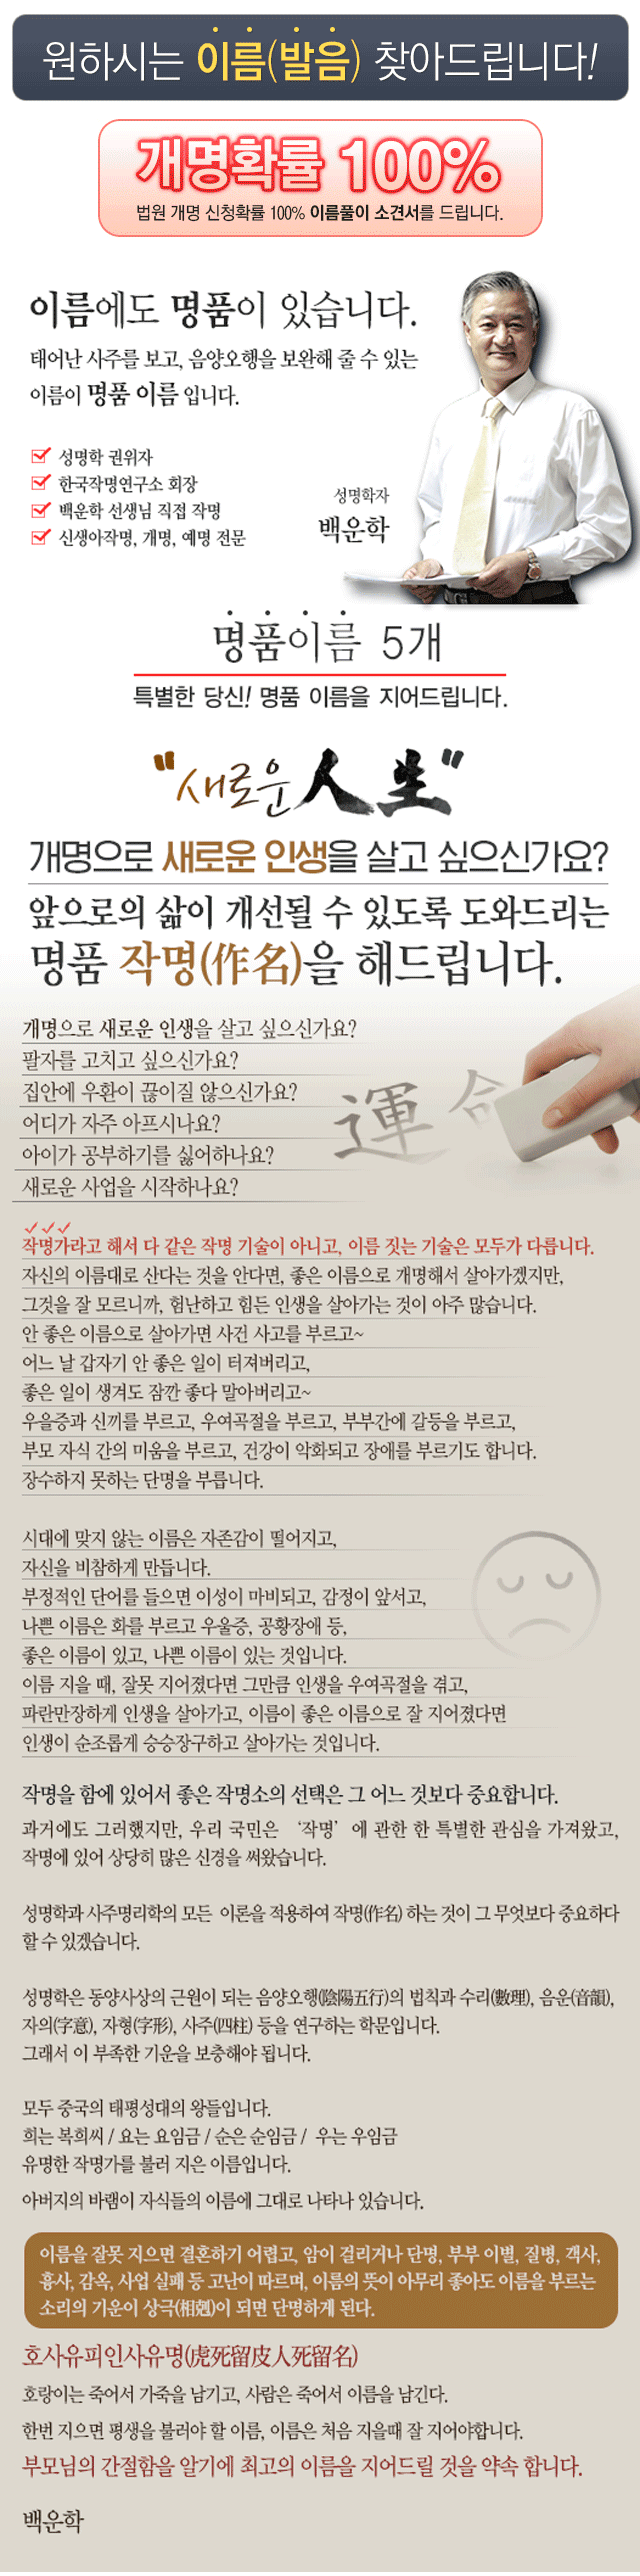 원하시는 이름(발음) 찾아드립니다!
개명확률 100%
법원 개명 신청확률 100% 이름풀이 소견서를 드립니다.
이름에도 명품이 있습니다.
태어난 사주를 보고, 음양오행을 보완해 줄 수 있는
이름이 명품 이름 입니다.
성명학 권위자
한국작명연구소 회장
백운학 선생님 직접 작명
신생아작명, 개명, 예명 전문
성명학자
백운학
명품이름 5개
특별한 당신! 명품 이름을 지어드립니다.
"새로운 人生"
개명으로 새로운 인생을 살고 싶으신가요?
앞으로의 삶이 개선될 수 있도록 도와드리는
명품 작명(作名)을 해드립니다.
개명으로 새로운 인생을 살고 싶으신가요?
팔자를 고치고 싶으신가요?
집안에 우환이 끊이질 않으신가요?
어디가 자주 아프시나요?
아이가 공부하기를 싫어하나요?
새로운 사업을 시작하나요?
運命
작명가라고 해서 다 같은 작명 기술이 아니고, 이름 짓는 기술은 모두가 다릅니다.
자신의 이름대로 산다는 것을 안다면, 좋은 이름으로 개명해서 살아가겠지만,
그것을 잘 모르니까, 험난하고 힘든 인생을 살아가는 것이 아주 많습니다.
안 좋은 이름으로 살아가면 사건 사고를 부르고~
어느 날 갑자기 안 좋은 일이 터져버리고,
좋은 일이 생겨도 잠깐 좋다 말아버리고~
우울증과 신끼를 부르고, 우여곡절을 부르고, 부부간에 갈등을 부르고,
부모 자식 간의 미움을 부르고, 건강이 악화되고 장애를 부르기도 합니다.
장수하지 못하는 단명을 부릅니다.
시대에 맞지 않는 이름은 자존감이 떨어지고,
자신을 비참하게 만듭니다.
부정적인 단어를 들으면 이성이 마비되고, 감정이 앞서고,
나쁜 이름은 화를 부르고 우울증, 공황장애 등,
좋은 이름이 있고, 나쁜 이름이 있는 것입니다.
이름 지을 때, 잘못 지어졌다면 그만큼 인생을 우여곡절을 겪고,
파란만장하게 인생을 살아가고, 이름이 좋은 이름으로 잘 지어졌다면
인생이 순조롭게 승승장구하고 살아가는 것입니다.
작명을 함에 있어서 좋은 작명소의 선택은 그 어느 것보다 중요합니다.
과거에도 그러했지만, 우리 국민은 '작명' 에 관한 한 특별한 관심을 가져왔고,
작명에 있어 상당히 많은 신경을 써왔습니다.
성명학과 사주명리학의 모든 이론을 적용하여 작명(作名) 하는 것이 그 무엇보다 중요하다
할 수 있겠습니다.
성명학은 동양사상의 근원이 되는 음양오행(陰陽五行)의 법칙과 수리(數理), 음운(音韻),
자의(字意), 자형(字形), 사주(四柱) 등을 연구하는 학문입니다.
그래서 이 부족한 기운을 보충해야 됩니다.
모두 중국의 태평성대의 왕들입니다.
희는 복희씨 / 요는 요임금 / 순은 순임금 / 우는 우임금
유명한 작명가를 불러 지은 이름입니다.
아버지의 바램이 자식들의 이름에 그대로 나타나 있습니다.
이름을 잘못 지으면 결혼하기 어렵고, 암이 걸리거나 단명, 부부 이별, 질병, 객사,
흉사, 감옥, 사업 실패 등 고난이 따르며, 이름의 뜻이 아무리 좋아도 이름을 부르는
소리의 기운이 상극(相剋)이 되면 단명하게 된다.
호사유피인사유명(虎死留皮人死留名)
호랑이는 죽어서 가죽을 남기고, 사람은 죽어서 이름을 남긴다.
한번 지으면 평생을 불러야 할 이름, 이름은 처음 지을때 잘 지어야합니다.
부모님의 간절함을 알기에 최고의 이름을 지어드릴 것을 약속 합니다.
백운학